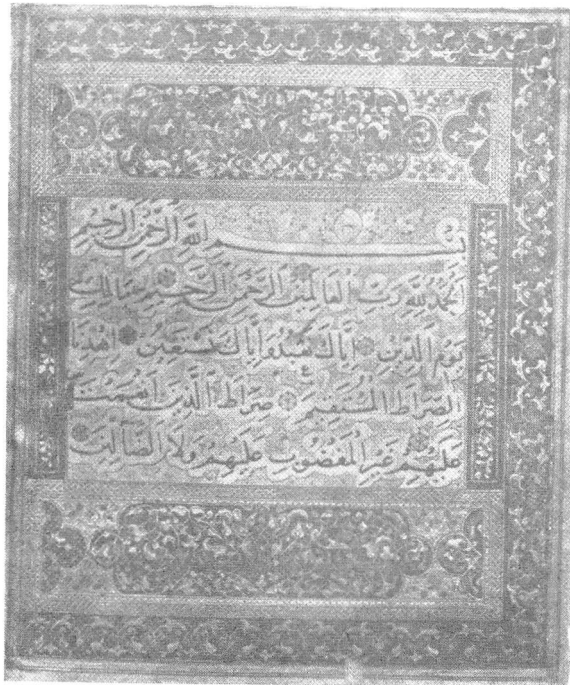 بِسْمِ اللهِ الرَّحْمٰنِ الرَّحِيْمِ
اَلْحَمْدُ لِلهِ رَبِّ الْعَالَمِيْنَ الرَّحْمٰنِ الرَّحِيْمِ مَالِكِ
يَوْمِ الدِّيْنِ اِيَّاكَ نَعْبُدُ وَاِيَّاكَ نَسْتَعِيْنُ اِهْدِنَا
الصِّرَاطَ الْمُسْتَقِيْمَ صِرَاطَ الَّذِيْنَ اَنْعَمْتَ
عَلَيْهِمْ غَيْرِ الْمَغْضُوْبِ عَلَيْهِمْ وَلَا الضَّآلِّيْنَ